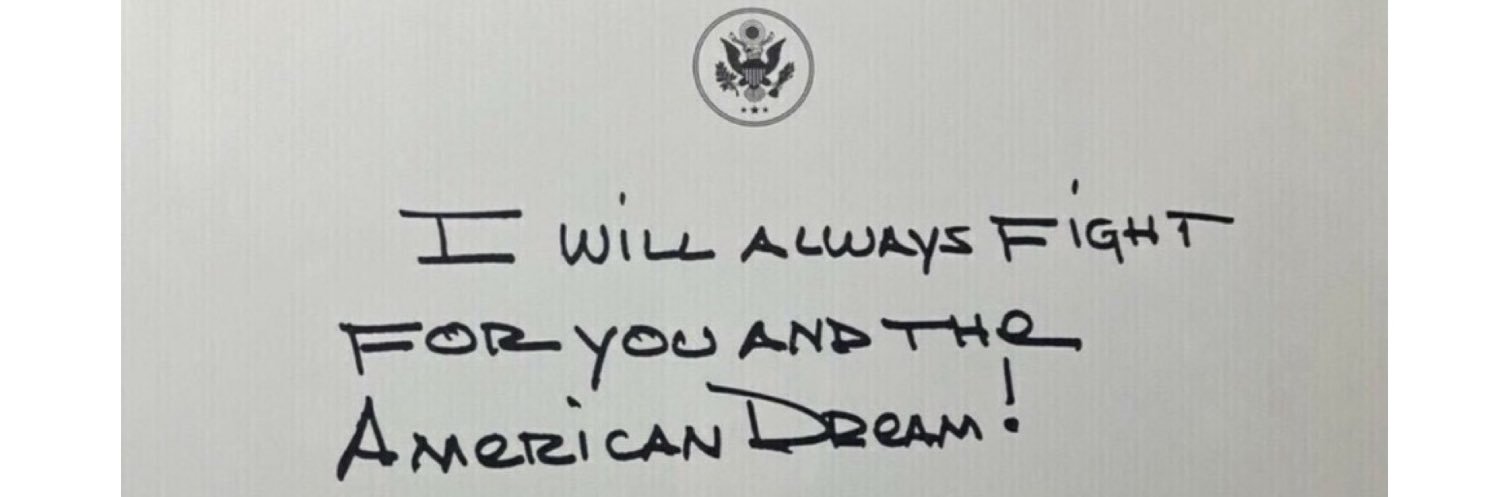 I WiLL ALWAYS FiGHT
FOR YOU AND THe
AMeRiCAN DReAM!